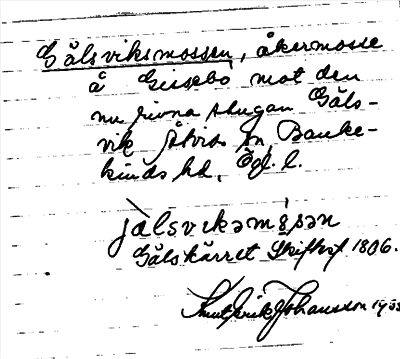 Gälsviksmossen, åkermosse
å Gissebo mot den
nu rivna stugan Gäls-
vik Åtvids sn, Banke-
kinds hd, Ög. l.
jälsvıksmɔsən
Gälskärret Skifteskt 1806.
Knut Erik Johansson 1933